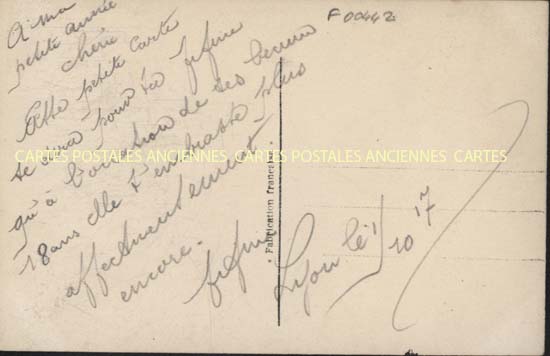 A ma
petite année
chérie
Cette petite carte
te dira pour ta fifine
qu'à l'occasion de ses
18 ans elle t'embrasse plus
affectueusement
encore.
fifine
Lyon le 1/10 17
F00442
• Fabrication française •
CARTES POSTALES ANCIENNES CARTES POSTALES ANCIENNES CARTES